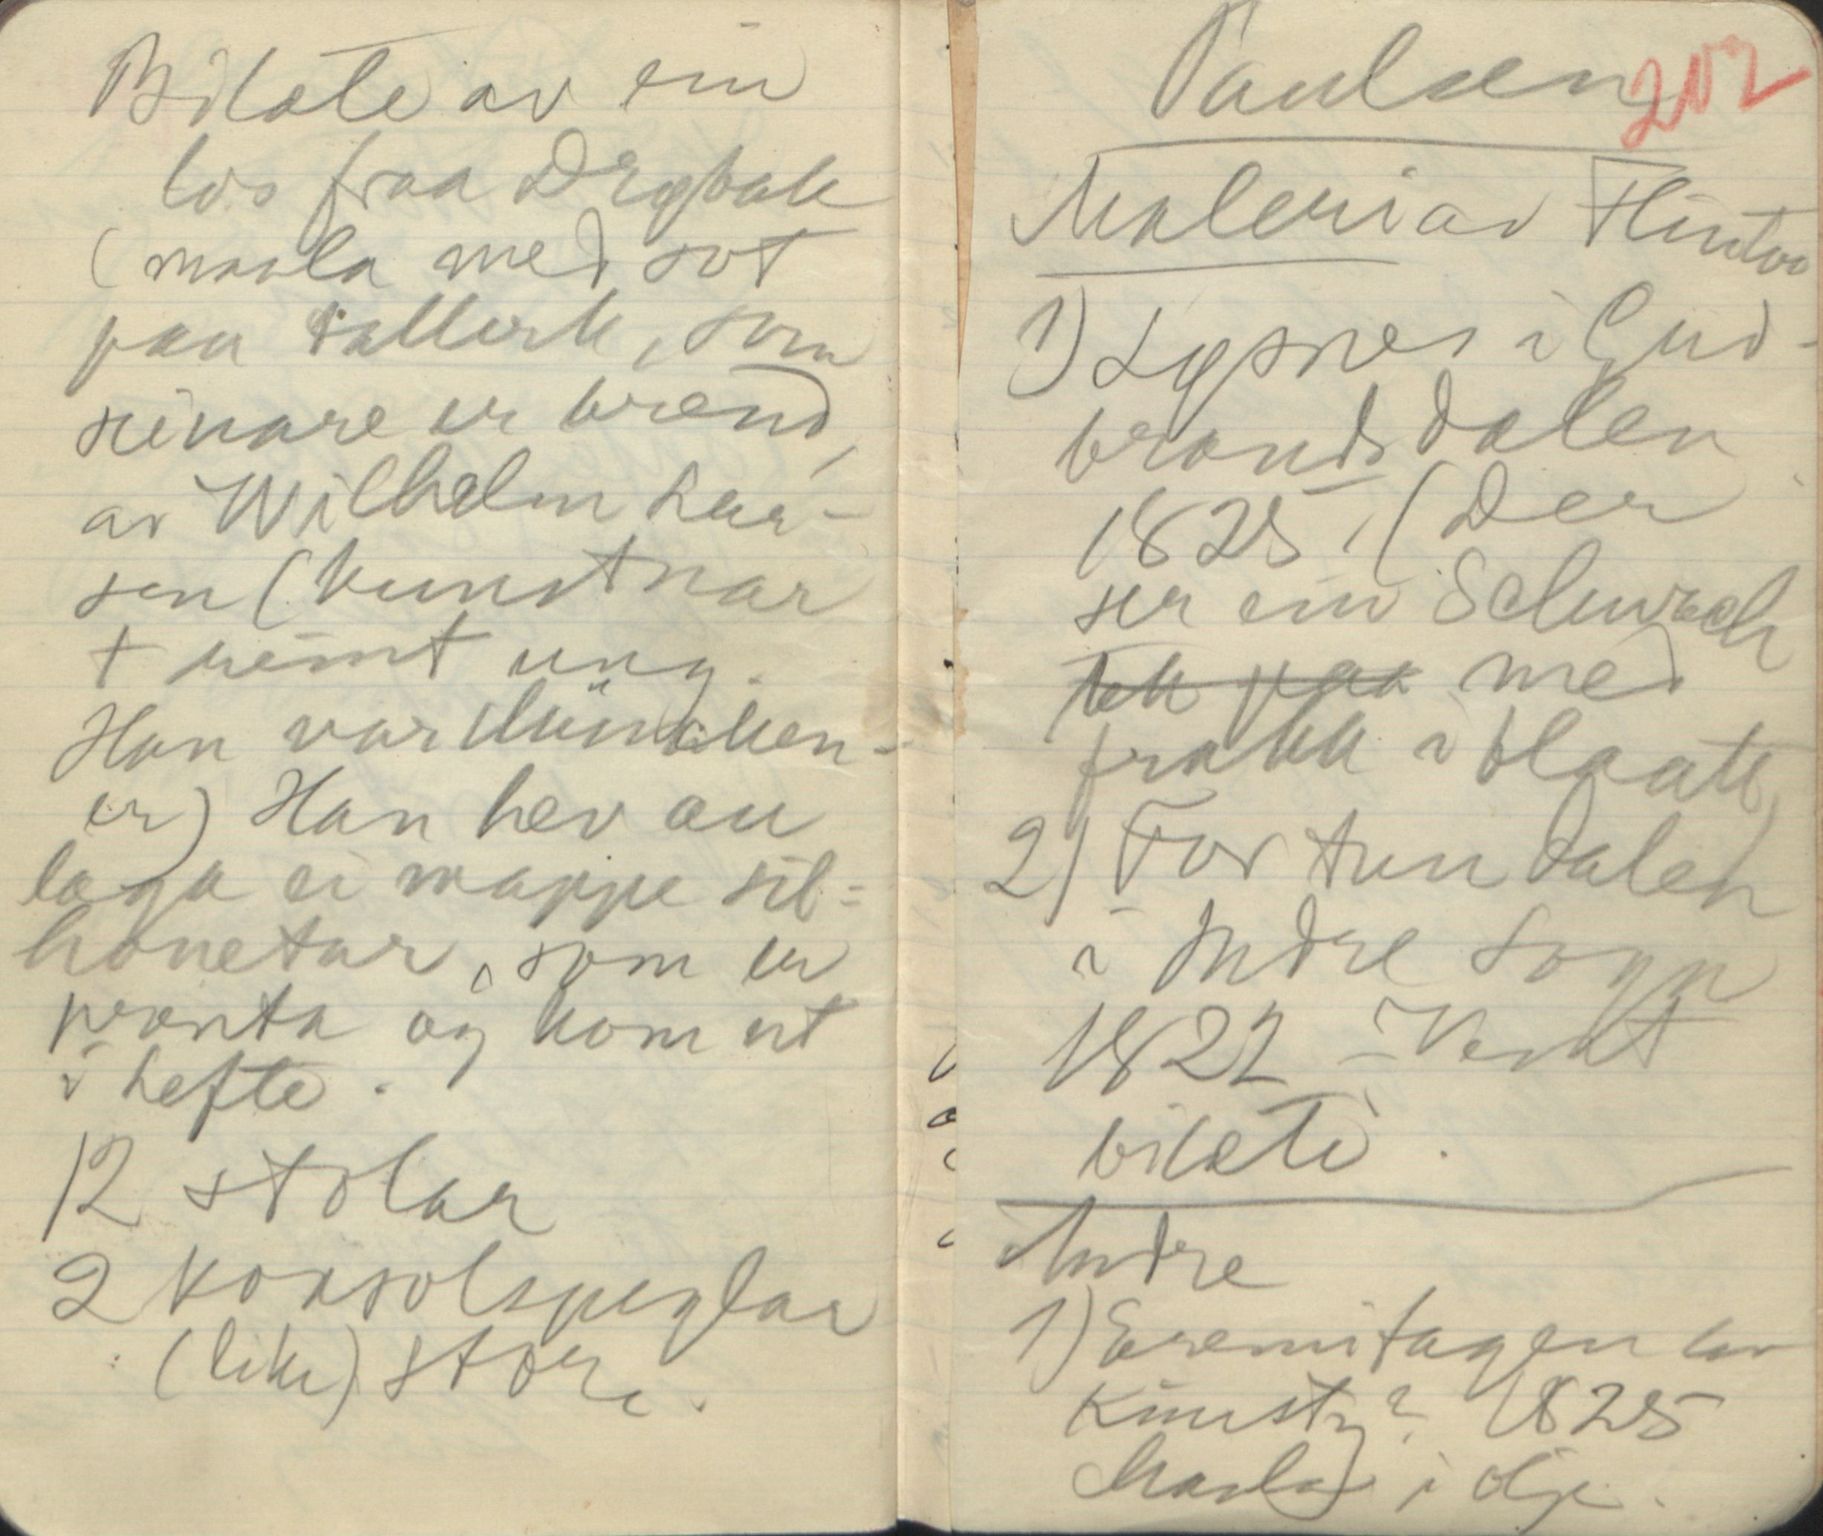 Bilæte av ein
los fraa Drøbak
(maala med sot
paa tallerk, som
seinare er brend,
av Wilhelm Lar-
sen (kunstnar
+ heimt ung.
Han var München-
er) Han hev au
laga ei mappe sil-
houetar, som er
prenta og kom ut
i hefte.
12 stolar
2 konsolspeglar
(like) store.
Paulsen
202
Maleri av Flintoe
1) Lysnes i Gud-
brandsdalen
1825. (Der
ser ein Schwach
med
frakk i blaatt)
2) Fortundalen
i Indre Sogn
1822 - Vent
bilæte.
Andre
1) Eremitagen av
1825
Maala i olje.